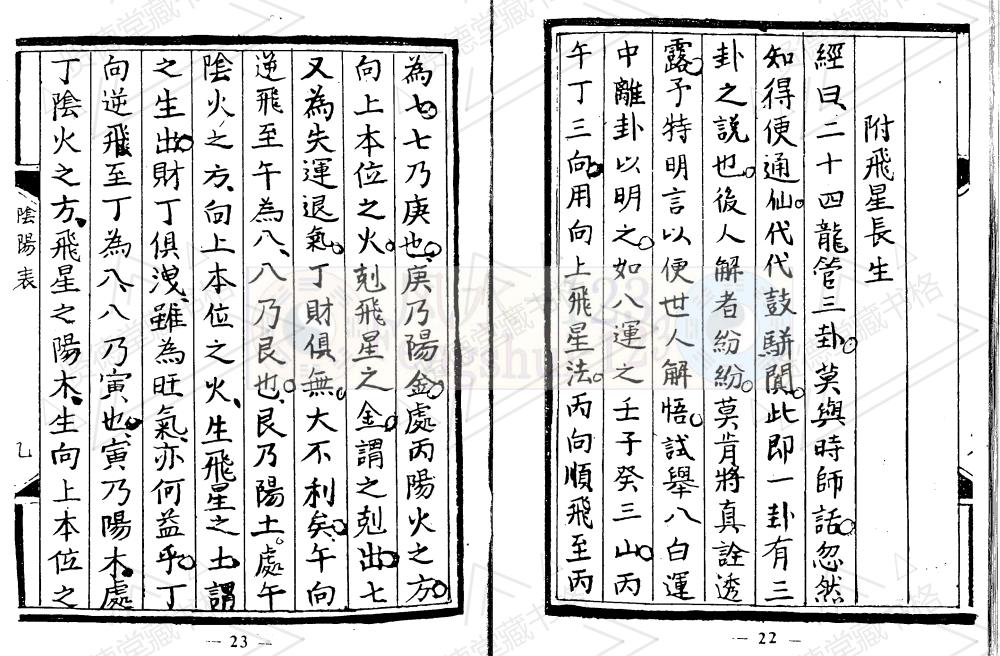 附飛星長生
經曰、二十四龍管三卦。莫與時師話。忽然
知得便通仙。代代鼓駢闐。此即一卦有三
卦之說也。後人解者紛紛。莫肯將真詮透
露。予特明言以便世人解悟。試舉八白運
中離卦以明之。如八運之壬子癸三山。丙
午丁三向。用向上飛星法。丙向順飛至丙
— 22 —
為七。七乃庚也。庚乃陽金。處丙陽火之方。
向上本位之火。剋飛星之金。謂之剋出。七
又為失運退氣。丁財俱無。大不利矣。午向
逆飛至午為八、八乃艮也。艮乃陽土。處午
陰火之方、向上本位之火、生飛星之土。謂
之生出。財丁俱洩、雖為旺氣、亦何益乎。丁
向逆飛至丁為八、八乃寅也。寅乃陽木。處
丁陰火之方、飛星之陽木、生向上本位之
陰陽表
乙
— 23 —